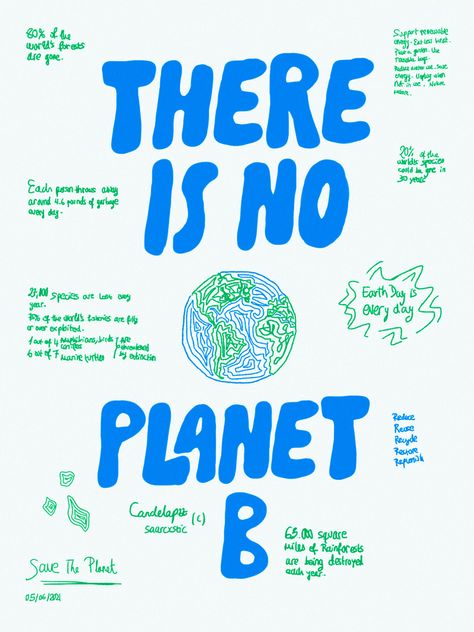 80% of the
world's forests
are gone.
Support renewable
energy. Eat less meat.
Plant a garden. Use
reusable bags.
Reduce water use. Save
energy. Unplug when
not in use.
THERE
IS NO
20% of the
world's species
could be gone in
30 years
Each person throws away
around 4.6 pounds of garbage
every day.
27,000 species are lost every
year.
of the world's fisheries are fully
or over exploited.
1 out of 4
6 out of 7 Marine turtles
by extinction
Earth Day is
every day
PLANET
B
Reduce
Reuse
Recycle
Restore
Replenish
(c)
saarcxstic
65.000 square
miles of Rainforests
are being destroyed
each year.
Save The Planet
05/06/2021